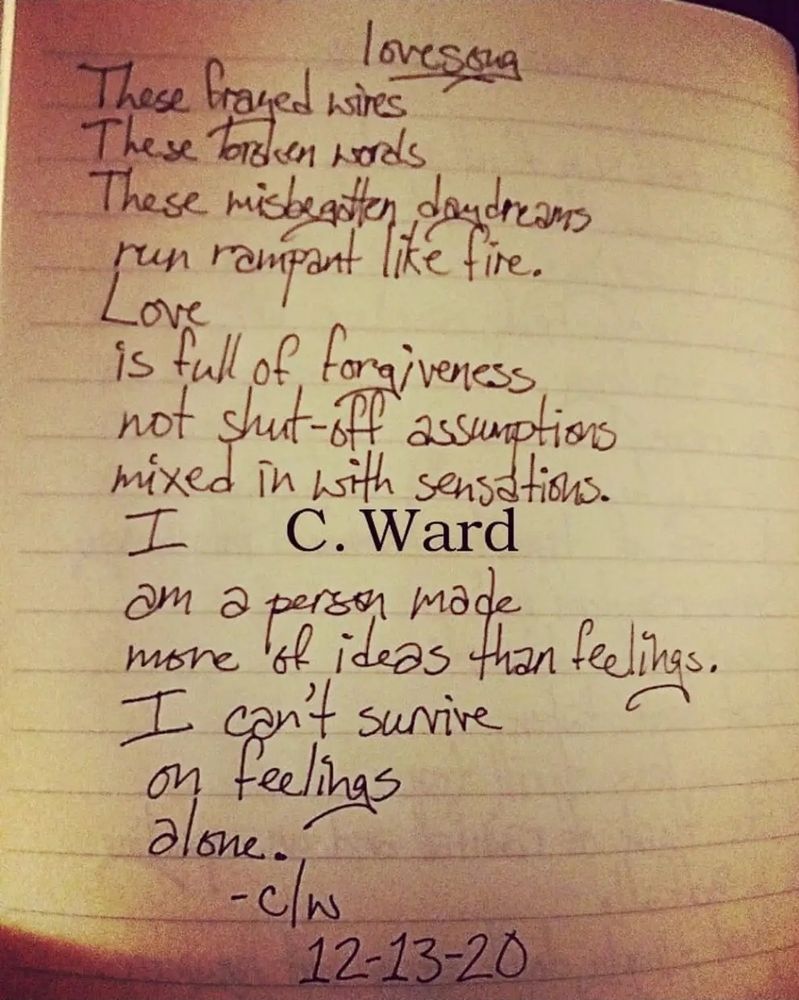 lovesong
These frayed wires
These broken words
These misbegotten daydreams
run rampant like fire.
Love
is full of forgiveness
not shut-off assumptions
mixed in with sensations.
I
C. Ward
am a person made
more of ideas than feelings.
I can't survive
on feelings
alone.
-c/w
12-13-20